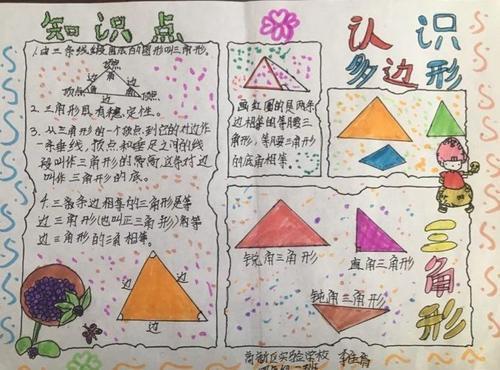 知识点
1.由三条线段围成的图形叫三角形。
顶点
边 角 边
顶点 角 角 顶点
边
2.三角形具有稳定性。
3.从三角形的一个顶点到它的对边作
一条垂线，顶点和垂足之间的线
段叫作三角形的高，这条对边
叫作三角形的底。
4.三条边相等的三角形是等
边三角形(也叫正三角形)，等
边三角形的三角相等。
边 边
边
画红圈的是两条
边相等的等腰三
角形，等腰三角形
的底角相等。
认识
多边形
三角形
锐角三角形
直角三角形
钝角三角形
高新区实验学校